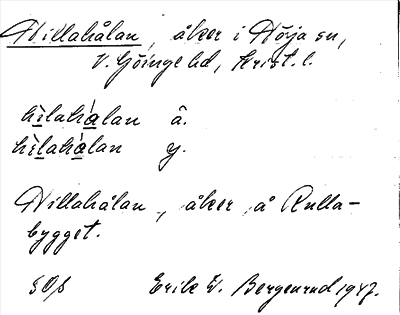 Hillahålan, åker i Röja sn,
V. Göinge hd, Krist. l.
hìlahàlan â.
hìlahàlan y.
Hillahålan, åker på Rulla-
bygget.
Erik W. Bergenrud 1947.